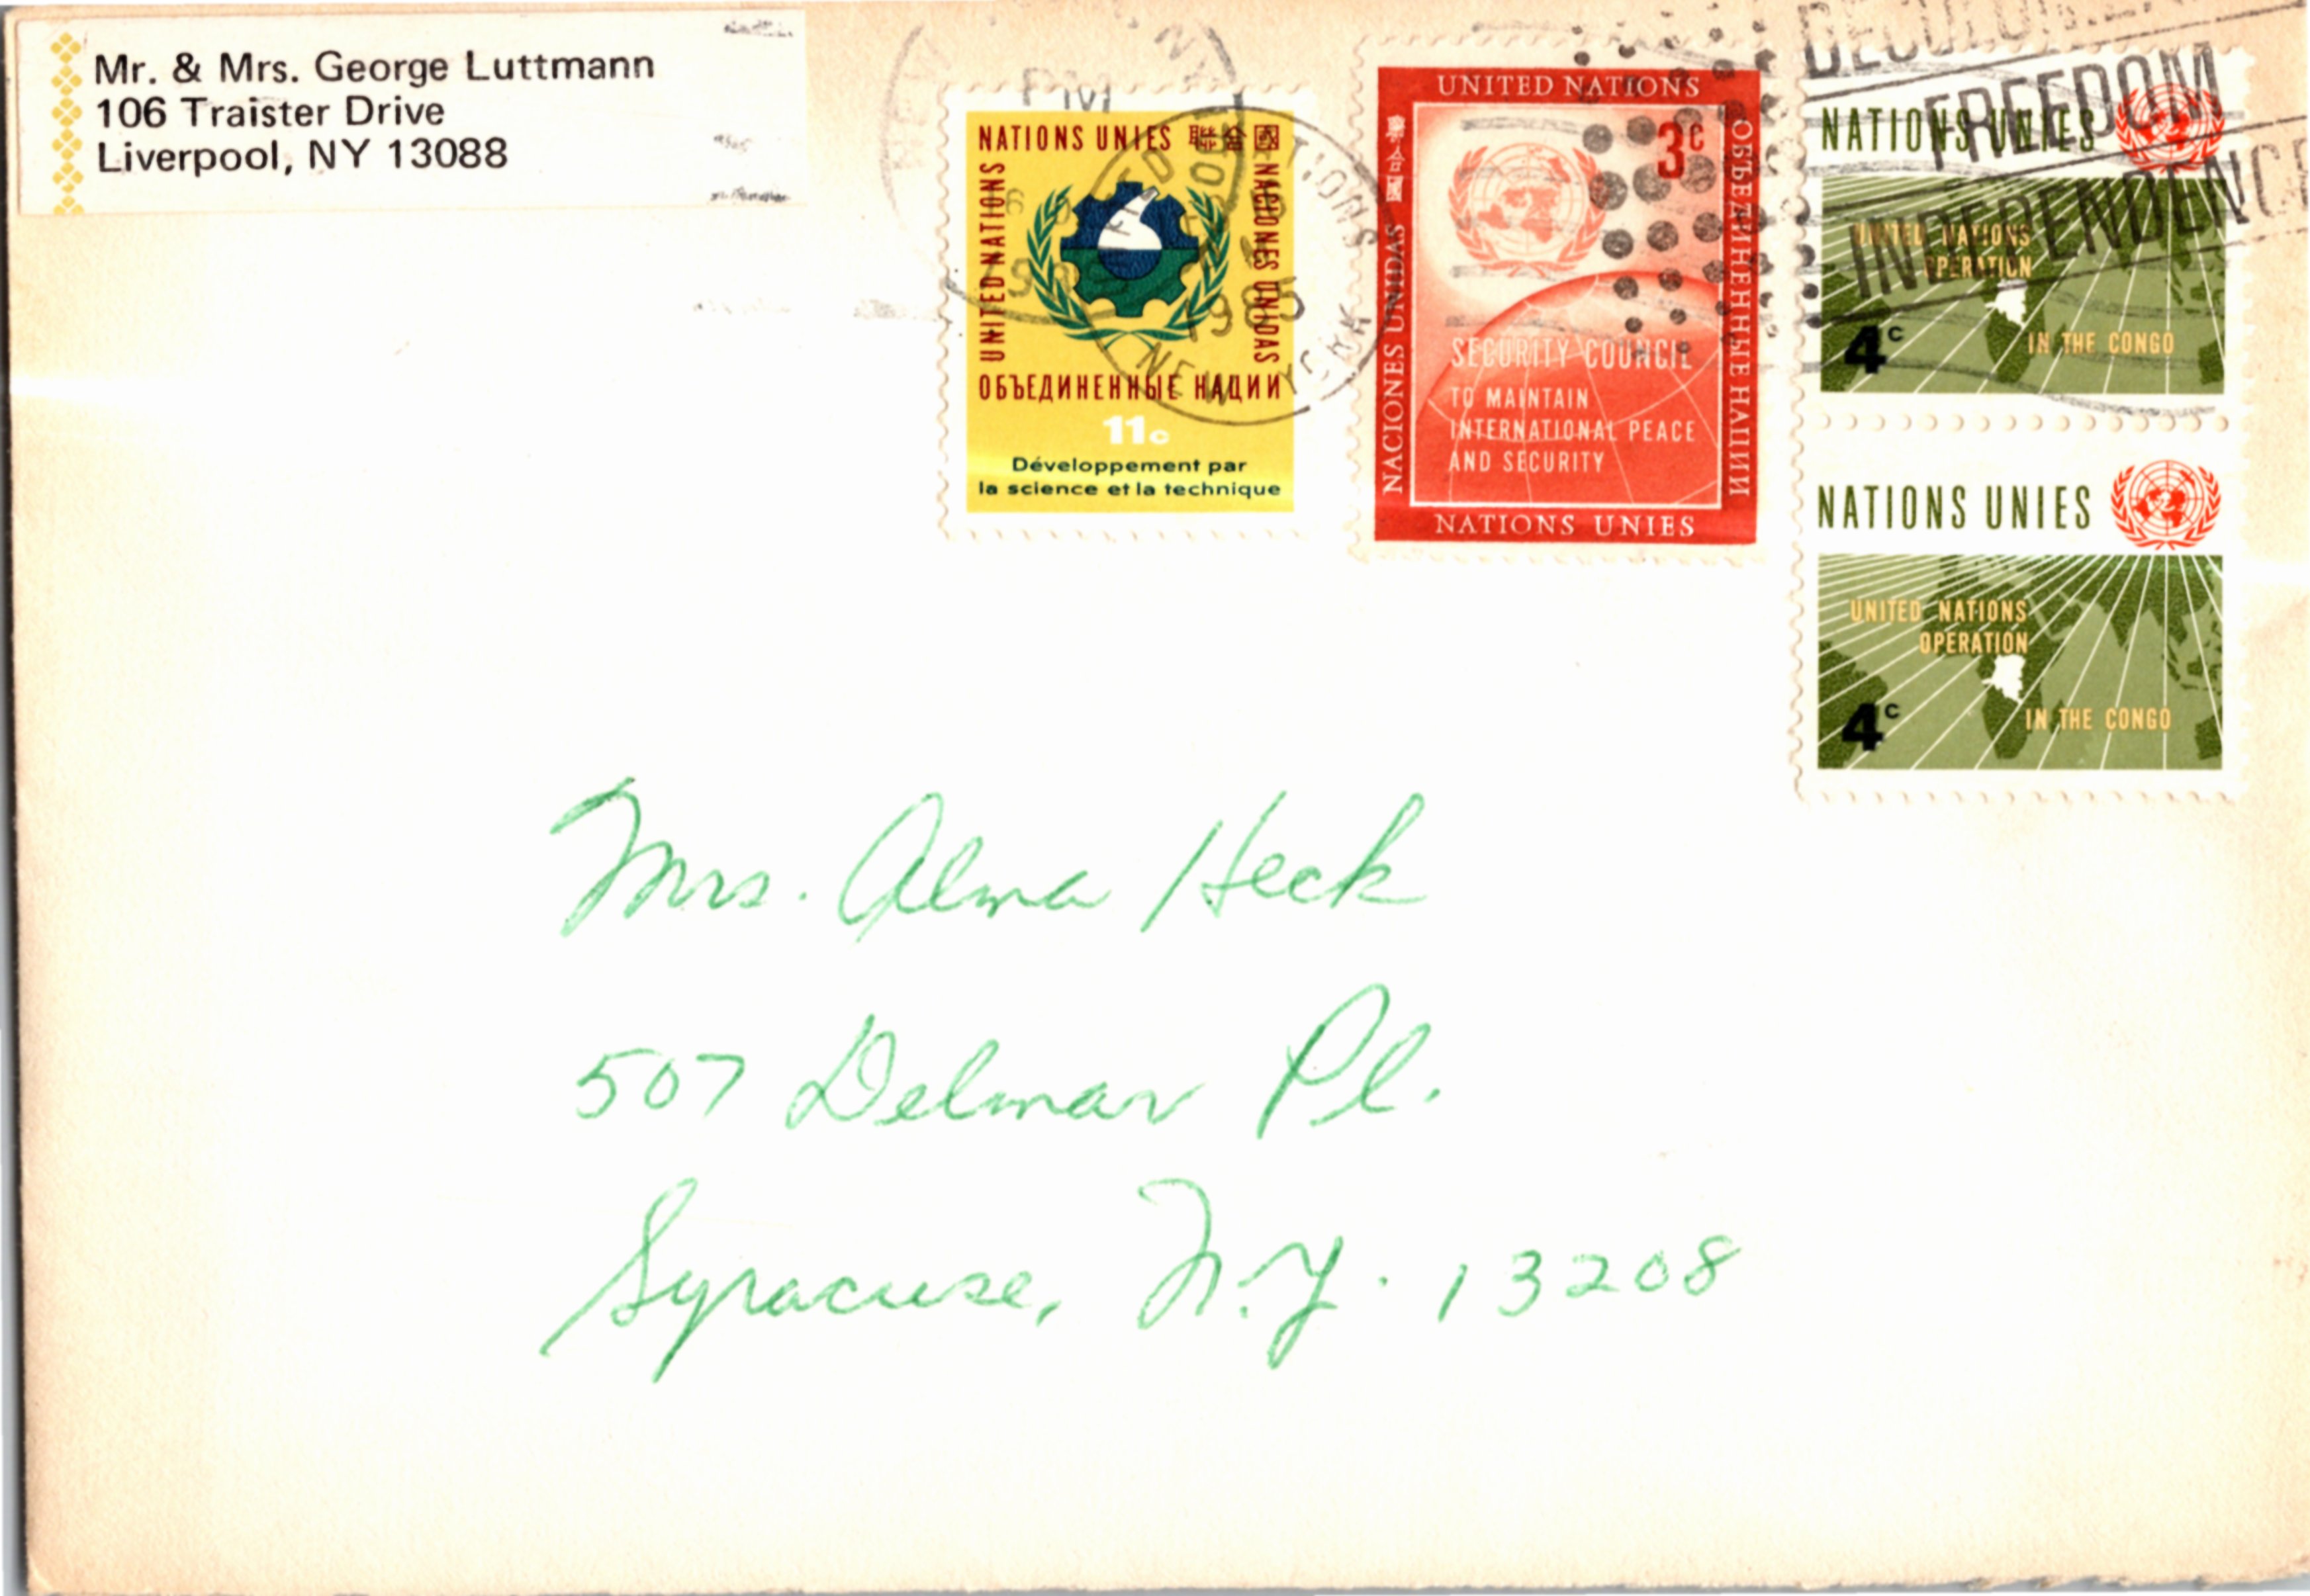 Mr. & Mrs. George Luttmann
106 Traister Drive
Liverpool, NY 13088
PM
UNITED NATIONS
NEW YORK
1985
FREEDOM
INDEPENDENCE
NATIONS UNIES 聯合國
UNITED NATIONS
NACIONES UNIDAS
ОБЪЕДИНЕННЫЕ НАЦИИ
11c
Développement par
la science et la technique
UNITED NATIONS
3c
聯合國
NACIONES UNIDAS
ОБЪЕДИНЕННЫЕ НАЦИИ
SECURITY COUNCIL
TO MAINTAIN
INTERNATIONAL PEACE
AND SECURITY
NATIONS UNIES
NATIONS UNIES
UNITED NATIONS
OPERATION
IN THE CONGO
4c
NATIONS UNIES
UNITED NATIONS
OPERATION
IN THE CONGO
4c
Mrs. Alma Heck
507 Delmar Pl.
Syracuse, N.Y. 13208